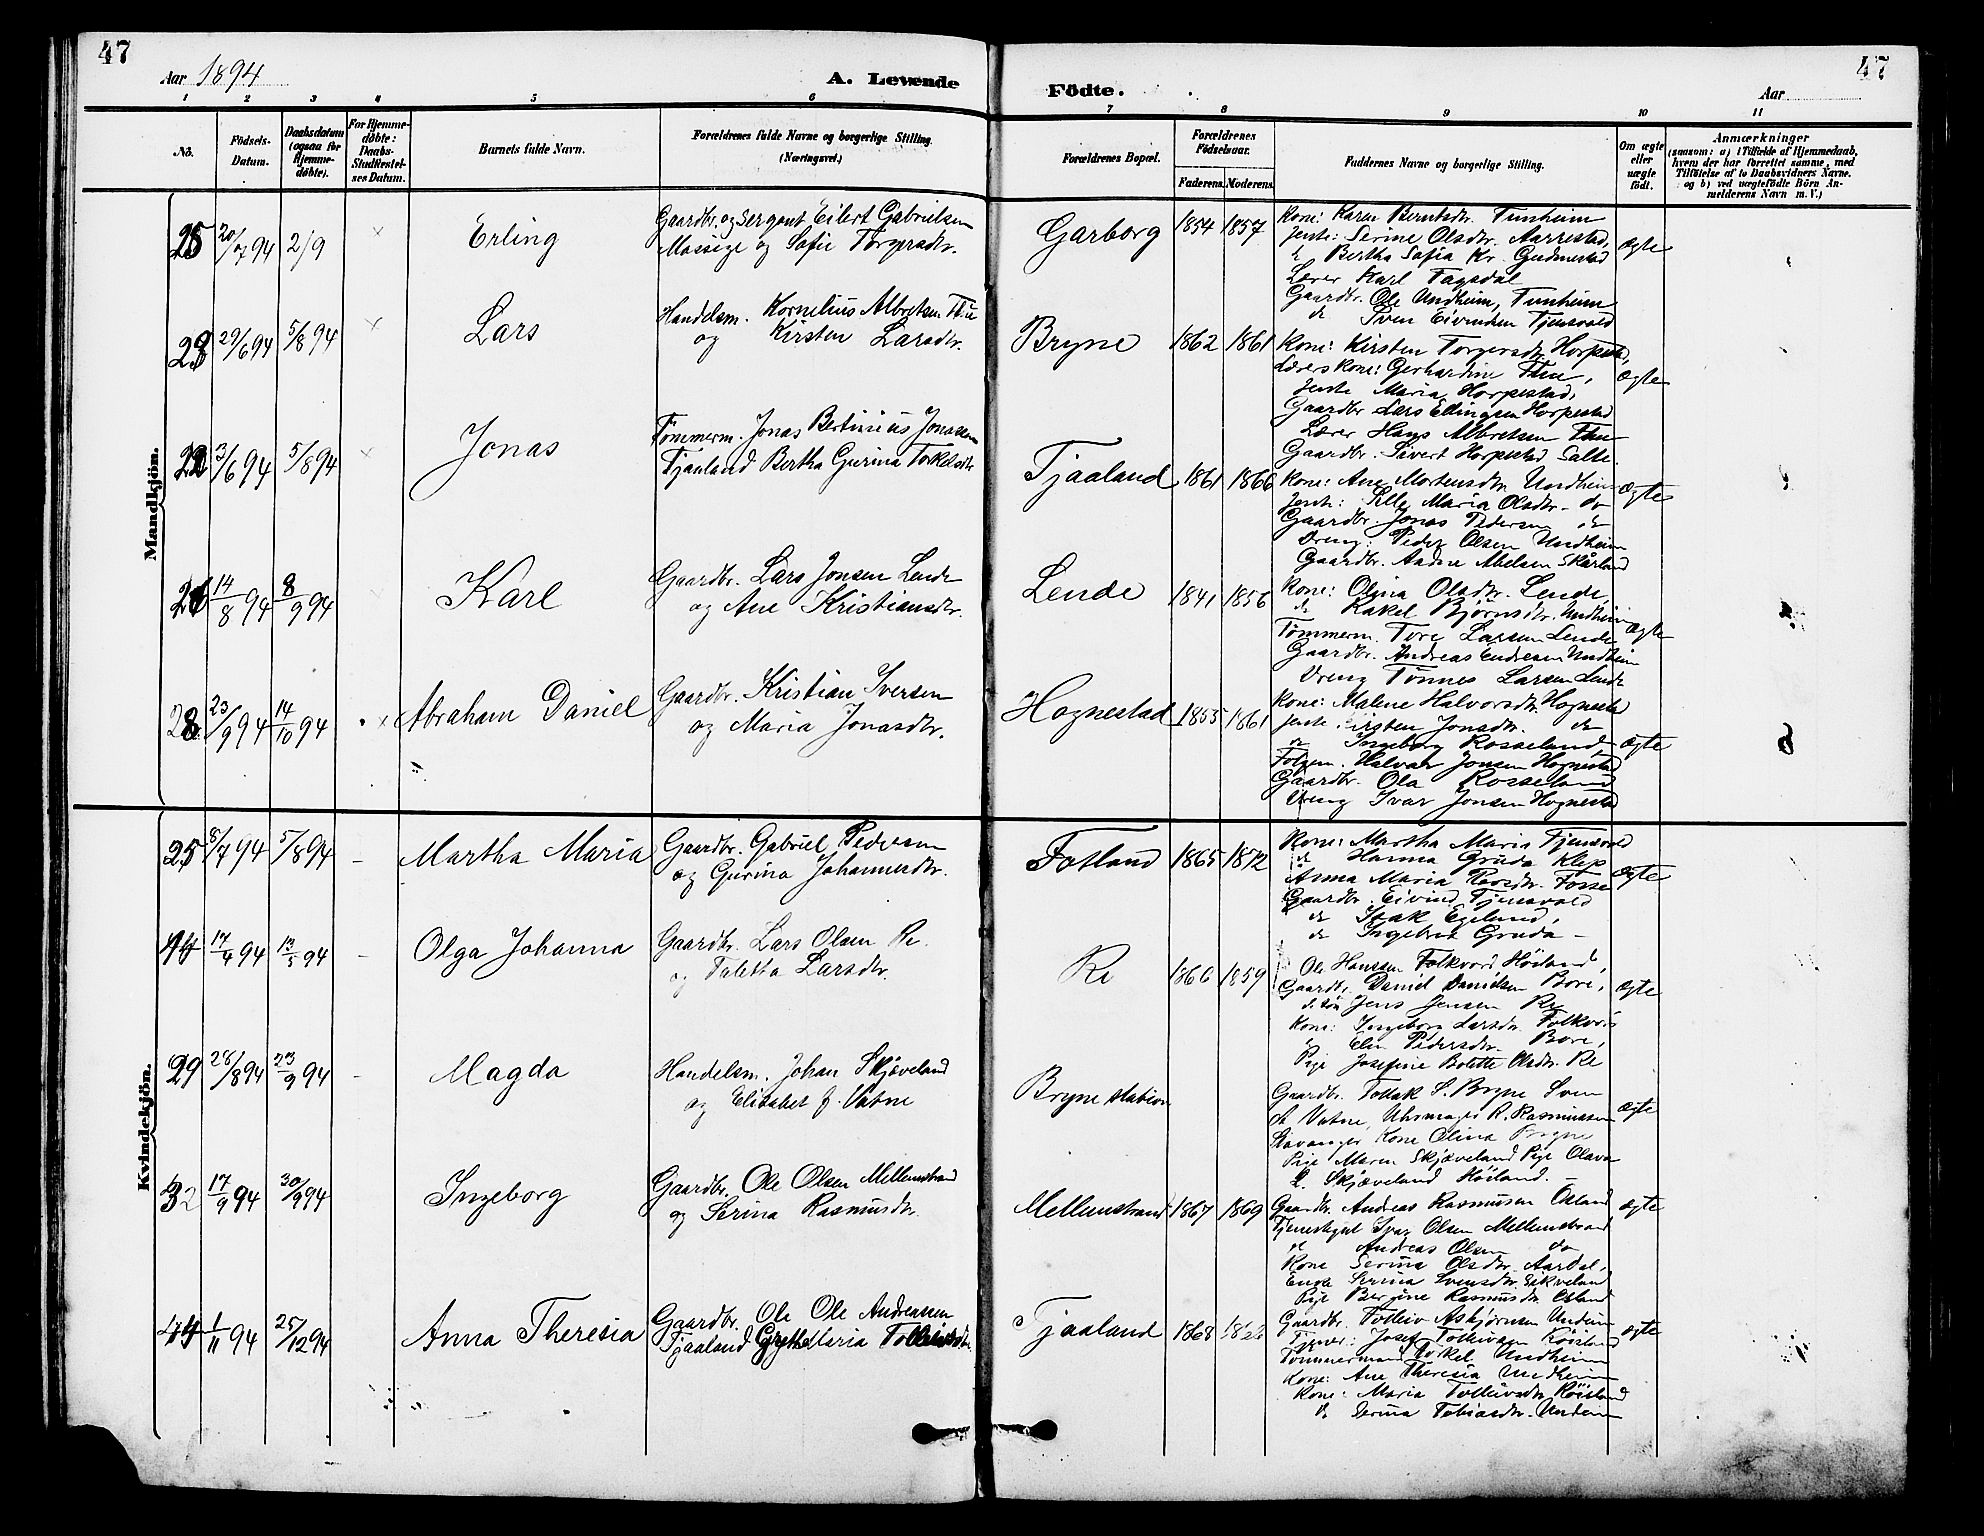 47
Aar 1894
A. Levende
Födte.
47
Aar
1 2 3 4 5 6 7 8 9 10 11
No.
Födsels-Datum.
Daabsdatum (ogsaa for Hjemme-döbte).
For Hjemme-döbte: Daabs-Stadfæstel-ses Datum.
Barnets fulde Navn.
Forældrenes fulde Navne og borgerlige Stilling.
(Næringsvei.)
Forældrenes Bopæl.
Forældrenes Födselsaar.
Faderens. Moderens.
Faddernes Navne og borgerlige Stilling.
Om ægte eller uægte födt.
Anmærkninger
(saasom: a) i Tilfælde af Hjemmedaab,
hvem der har forrettet samme, med
Tilföielse af to Daabsvidners Navne.
og b) ved uægtefödte Börn An-
melderens Navn m. V.)
Mandkjön.
25 20/07 94 2/9 × Erling
Gaardbr. og Sergant Eilert Gabrielsen
Massige og Sofie Torgersdtr.
Garborg 1854 1857
Kone: Karen Berntsdtr. Tunheim
Jente: Serine Olsdtr. Aarrestad,
d Bertha Sofia Kr. Gudmestad
Lærer Karl Tagsdal
Gaardbr. Ole Undheim, Tunheim
do Sven Eivindsen Tjensvold
ægte
28 29/6 94 5/8 94 × Lars
Handelsm. Kornelius Albretsen Thu
og Kirsten Larsdtr.
Bryne 1862 1861
Kone: Kirsten Torgersdtr. Horpestad,
Lærerskone: Gerhardine Thu,
Jente Maria Horpestad,
Gaardbr Lars Ellingsen Horpestad
Lærer Hans Albretsen Thu
Gaardbr. Sivert Horpestad Salte.
ægte
22 3/6 94 5/8 94 × Jonas
Tömmerm. Jonas Bertinius Jonassen
Tjaaland Bertha Gurina Torkelsdtr
Tjaaland 1861 1866
Kone: Ane Mortensdtr. Undheim
Jente: Lilly Maria Olsdtr. do
Gaardbr. Jonas Pedersen do
Dreng: Peder Olsen Undheim
Gaardbr. Andre Abelsen Skårland
ægte
26 14/8 94 8/9 94 Karl
Gaardbr. Lars Jonsen Lende
og Ane Kristiansdtr.
Lende 1841 1856
Kone: Olina Olsdtr. Lende,
do Rakel Björnsdtr. Undheim
Tömmerm. Tore Larsen Lende
Gaardbr. Andreas Endresen Undheim
Dreng Tönnes Larsen Lende
ægte
28 23/9 94 14/10 94 × Abraham Daniel
Gaardbr. Kristian Iversen
og Maria Jonasdtr.
Hognestad 1855 1861
Kone: Malene Halvorsdtr. Hognestad
Jente: Kirsten Jonsdtr. do
do Ingeborg Rosseland
Halvar Jonsen Hognestad
Gaardbr. Ola Rosseland
Dreng Ivar Jonsen Hognestad
ægte
Kvindekjön.
25 8/7 94 5/8 94 – Martha Maria
Gaardbr. Gabriel Pedersen
og Gurina Johannesdtr.
Fotland 1865 1872
Kone: Martha Maria Tjensvold
do Hanna Gruda Klep
Anna Maria Fosse
Gaardbr. Eivind Tjensvold
do Isak Egelund,
do Ingebret Gruda –
ægte
14 17/4 94 13/5 94 – Olga Johanna
Gaardbr. Lars Olsen Re.
og Taletta Larsdtr.
Re 1866 1859
Ole Hansen Folkvord Höiland,
Gaardbr. Daniel Danielsen Bore,
d. sön Jens Jensen Re
Kone: Ingeborg Larsdtr. Folkvord
" Elen Pedersdtr. Bore,
Pige Josefine Bolette Olsdtr. Re
ægte
29 28/8 94 23/9 94 – Magda
Handelsm. Johan Skjæveland
og Elisabet f. Vatne
Bryne station
Gaardbr. Tollak S. Bryne Sven
Vatne, Uhrmager R. Rasmussen
Stavanger Kone Olina Bryne
Pige Maren Skjæveland Pige Olava
Skjæveland Höiland.
ægte
32 17/9 94 30/9 94 Ingeborg
Gaardbr. Ole Olsen Mellemstrand
og Serina Rasmusdtr.
Mellemstrand 1867 1869
Gaardbr. Andreas Rasmussen Ösland
Tjenestegut Ivar Olsen Mellemstrand
do Andreas Olsen do
Kone Serina Olsdtr. Aardal,
Enga Serina Svensdtr. Sikveland
Pige Bergine Rasmusdtr. Ösland
ægte
44 1/11 94 25/12 94 Anna Theresia
Gaardbr. Ole Ole Andreassen
Tjaaland Grythe Maria
Tjaaland 1868
Gaardbr. Tolleiv Asbjörnsen Undeim
Tjener: Josef Tolleivsen Röisland
Tömmermand Torkel Undheim
Kone: Ane Theresia Undheim
Kone: Maria Tolleivsdtr. Röisland
do Serina Tobiasdtr. Undeim
ægte